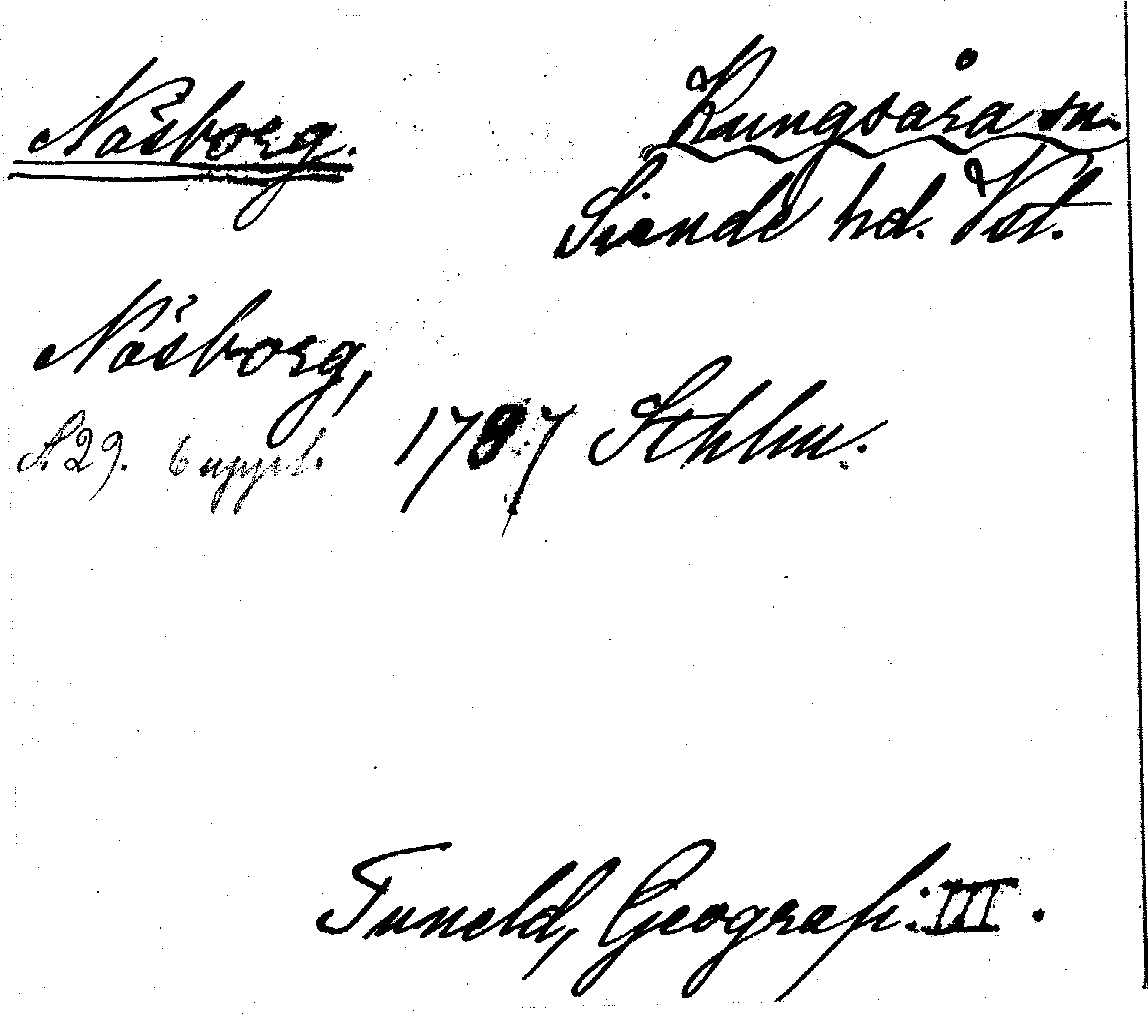 Näsborg. Kungsåra sn.
Siende hd. Vst.
Näsborg,
S. 29. 6 uppl. 1787 Sthlm.
Tuneld, Geografi. III.